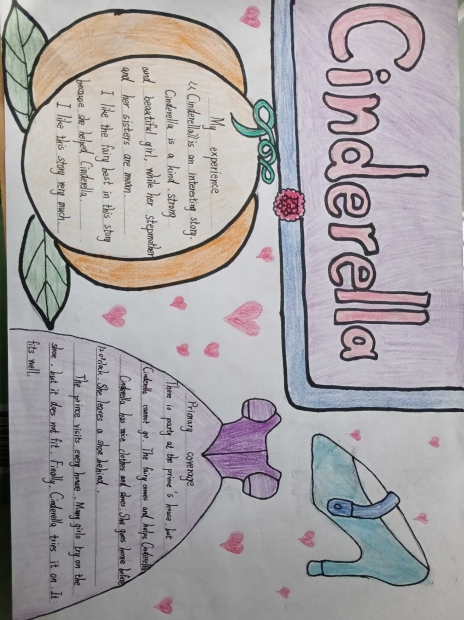 Cinderella
My experience
《Cinderella》is an interesting story.
Cinderella is a kind, strong
and beautiful girl, while her stepmother
and her sisters are mean.
I like the fairy best in this story
because she helped Cinderella.
I like this story very much.
Primary coverage
There is party at the prince's house, but
Cinderella cannot go. The fairy comes and helps Cinderella
Cinderella has nice clothes and shoes. She goes home before
12 o'clock. She leaves a shoe behind.
The prince visits every house. Many girls try on the
shoe, but it does not fit. Finally, Cinderella tries it on. It
fits well.